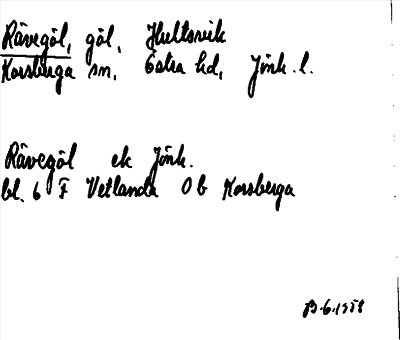 Rävegöl, göl, Hultsvik
Korsberga sn, Östra hd, Jönk. l.
Rävegöl ek Jönk.
bl. 6 F Vetlanda Ob Korsberga
6.1958